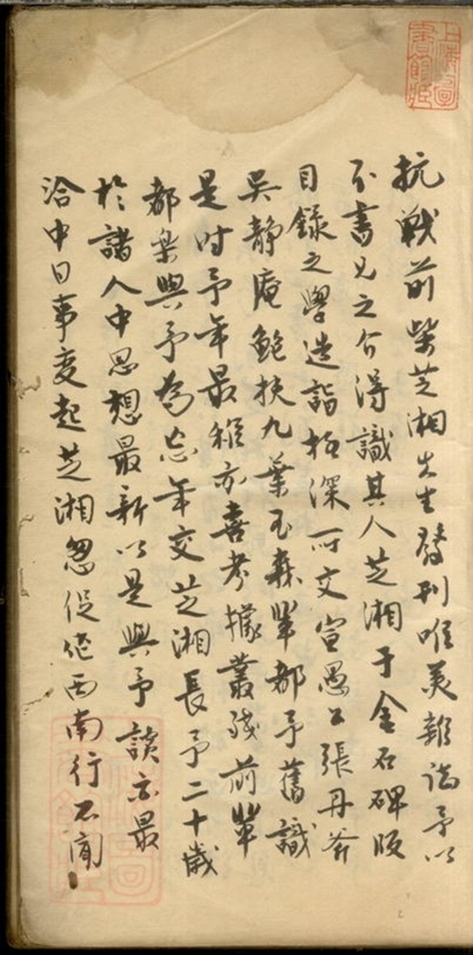 上海圖書館藏
抗戰前柴芝湘先生發刊唯美雜誌予以
不書兄之介得識其人芝湘于金石碑版
目錄之學造詣極深所交宣愚公張丹斧
吳靜庵鮑扶九葉玉森輩都予舊識
是時予年最稚亦喜考據叢殘前輩
都樂與予為忘年交芝湘長予二十歲
於諸人中思想最新以是與予談亦最
洽中日事變起芝湘怱促作西南行不聞